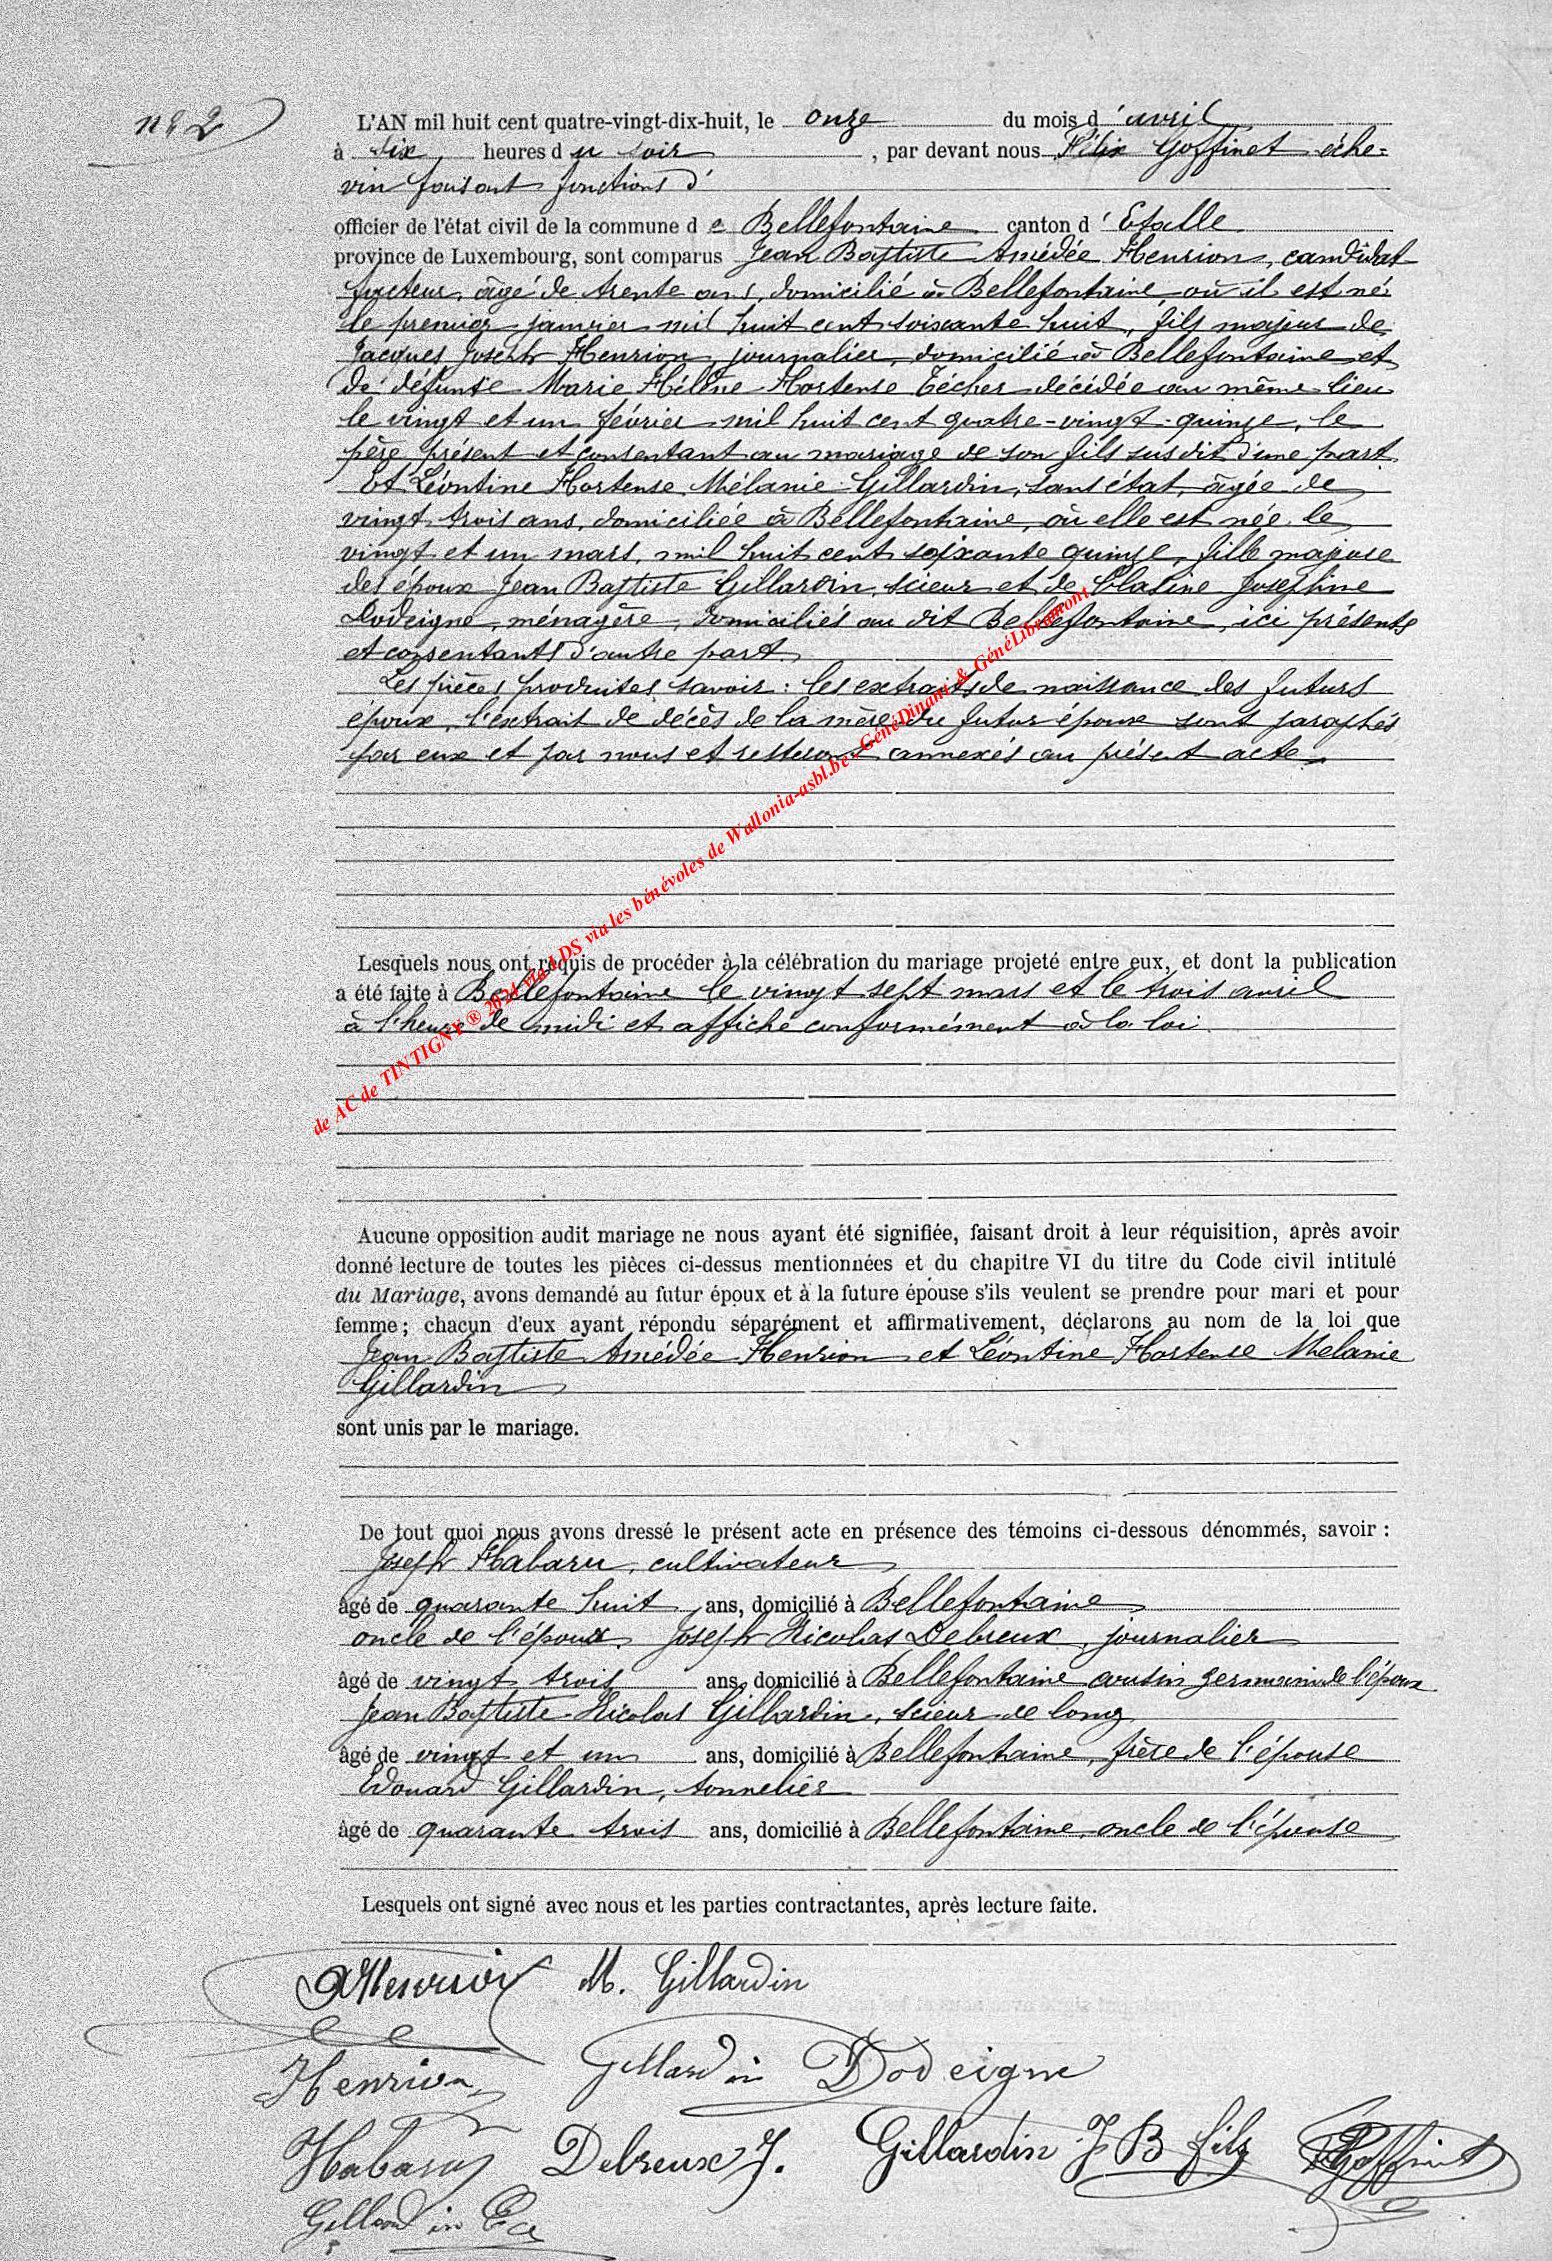 n° 2
L'AN mil huit cent quatre-vingt-dix-huit, le onze du mois d'avril
à six heures du soir, par devant nous Félix Goffinet éche=
vin faisant fonctions d'
officier de l'état civil de la commune de Bellefontaine canton d'Etalle
province de Luxembourg, sont comparus Jean Baptiste Amédée Henrion, candidat
facteur, âgé de trente ans, domicilié à Bellefontaine où il est né
le premier janvier mil huit cent soixante huit, fils majeur de
Jacques Joseph Henrion, journalier, domicilié à Bellefontaine et
de défunte Marie Hélène Hortense Técher décédée au même lieu
le vingt et un février mil huit cent quatre-vingt-quinze, le
père présent et consentant au mariage de son fils susdit d'une part.
Et Léontine Hortense Mélanie Gillardin, sans état, âgée de
vingt trois ans, domiciliée à Bellefontaine, où elle est née le
vingt et un mars mil huit cent soixante quinze, fille majeure
des époux Jean Baptiste Gillardin, scieur et de Josephine
Dodeigne, ménagère, domiciliés au dit Bellefontaine, ici présents
et consentants d'autre part.
Les pièces produites savoir : les extraits de naissance des futurs
époux, l'extrait de décès de la mère du futur époux sont paraphés
par eux et par nous et resteront annexés au présent acte.
Lesquels nous ont requis de procéder à la célébration du mariage projeté entre eux, et dont la publication
a été faite à Bellefontaine le vingt sept mars et le trois avril
à l'heure de midi et affiché conformément à la loi.
de AC de TINTIGNY ® 2024 via LDS via les bénévoles de Wallonia-asbl.be - GénéDinant & GénéLibramont
Aucune opposition audit mariage ne nous ayant été signifiée, faisant droit à leur réquisition, après avoir
donné lecture de toutes les pièces ci-dessus mentionnées et du chapitre VI du titre du Code civil intitulé
du Mariage, avons demandé au futur époux et à la future épouse s'ils veulent se prendre pour mari et pour
femme; chacun d'eux ayant répondu séparément et affirmativement, déclarons au nom de la loi que
Jean Baptiste Amédée Henrion et Léontine Hortense Melanie
Gillardin
sont unis par le mariage.
De tout quoi nous avons dressé le présent acte en présence des témoins ci-dessous dénommés, savoir :
Joseph Habaru, cultivateur
âgé de quarante huit ans, domicilié à Bellefontaine
oncle de l'époux. Joseph Nicolas Debreux, journalier
âgé de vingt trois ans, domicilié à Bellefontaine cousin germain de l'époux
Jean Baptiste Nicolas Gillardin, scieur de long
âgé de vingt et un ans, domicilié à Bellefontaine, frère de l'épouse
Edouard Gillardin, tonnelier
âgé de quarante trois ans, domicilié à Bellefontaine, oncle de l'épouse
Lesquels ont signé avec nous et les parties contractantes, après lecture faite.
AHenrion M. Gillardin
Henrion Gillardin Dodeigne
Habaru Debreux J. Gillardin J B fils Goffinet
Gillardin Ed